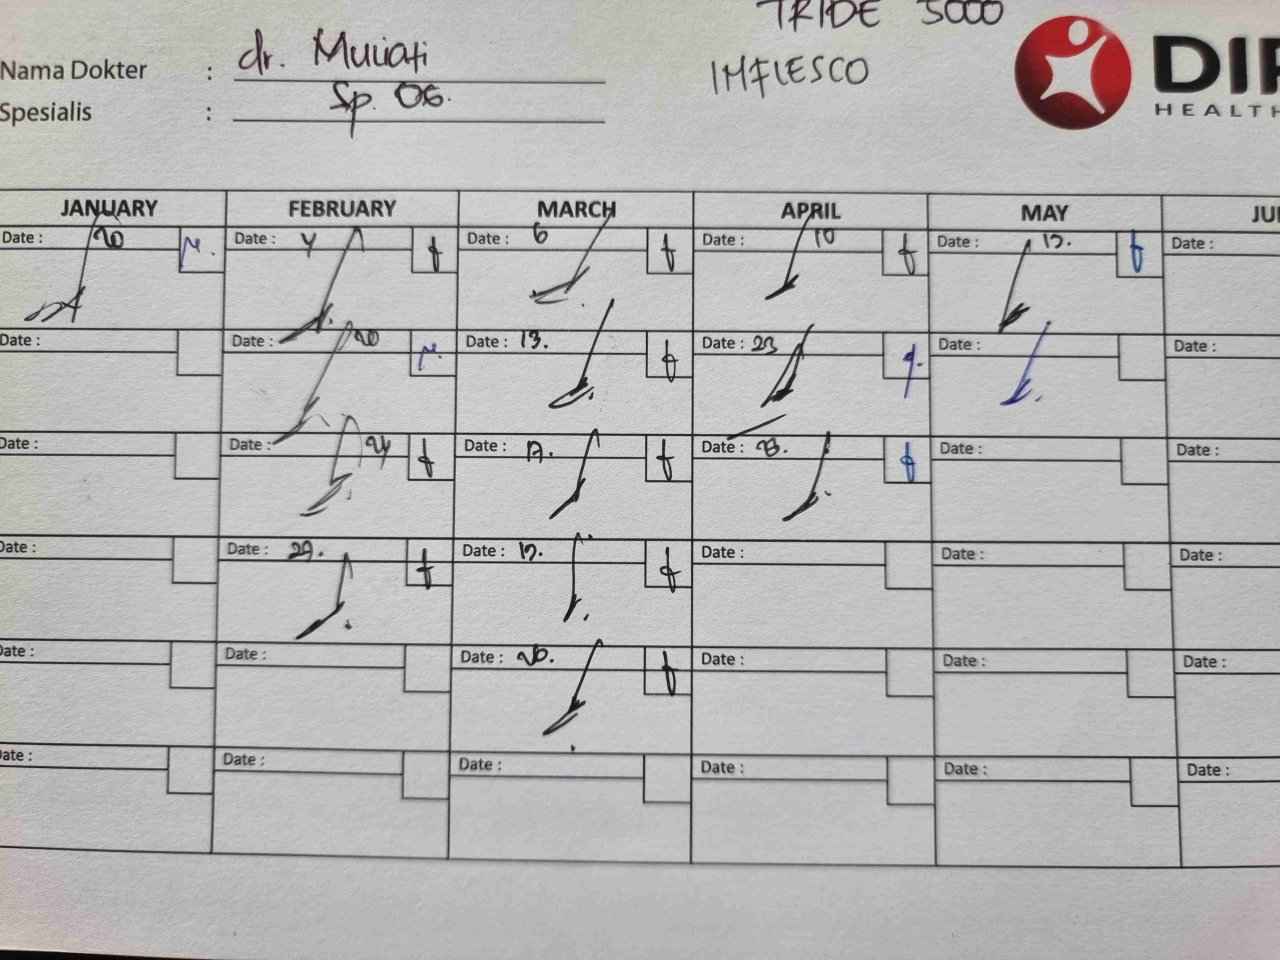 TRIDE 5000
Nama Dokter : dr. Muliati
IMFLESCO
Spesialis : Sp. OG.
HEALTH
JANUARY FEBRUARY MARCH APRIL MAY
Date : 20 Date : 4 Date : 6 Date : 10 Date : 13. Date :
Date : Date : 20 Date : 13. Date : 23 Date : Date :
Date : Date : 24 Date : 17. Date : 28. Date : Date :
Date : Date : 27. Date : Date : Date : Date :
Date : Date : Date : 26. Date : Date : Date :
Date : Date : Date : Date : Date : Date :